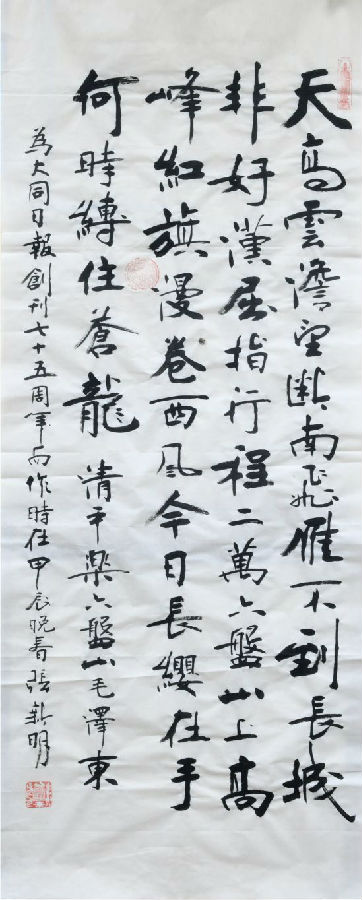 天高雲澹望斷南飛雁不到長城
非好漢屈指行程二萬六盤山上高
峰紅旗漫卷西風今日長纓在手
何時縛住蒼龍 清平樂六盤山毛澤東
為大同日報創刊七十五周年而作時在甲辰晚春張新明